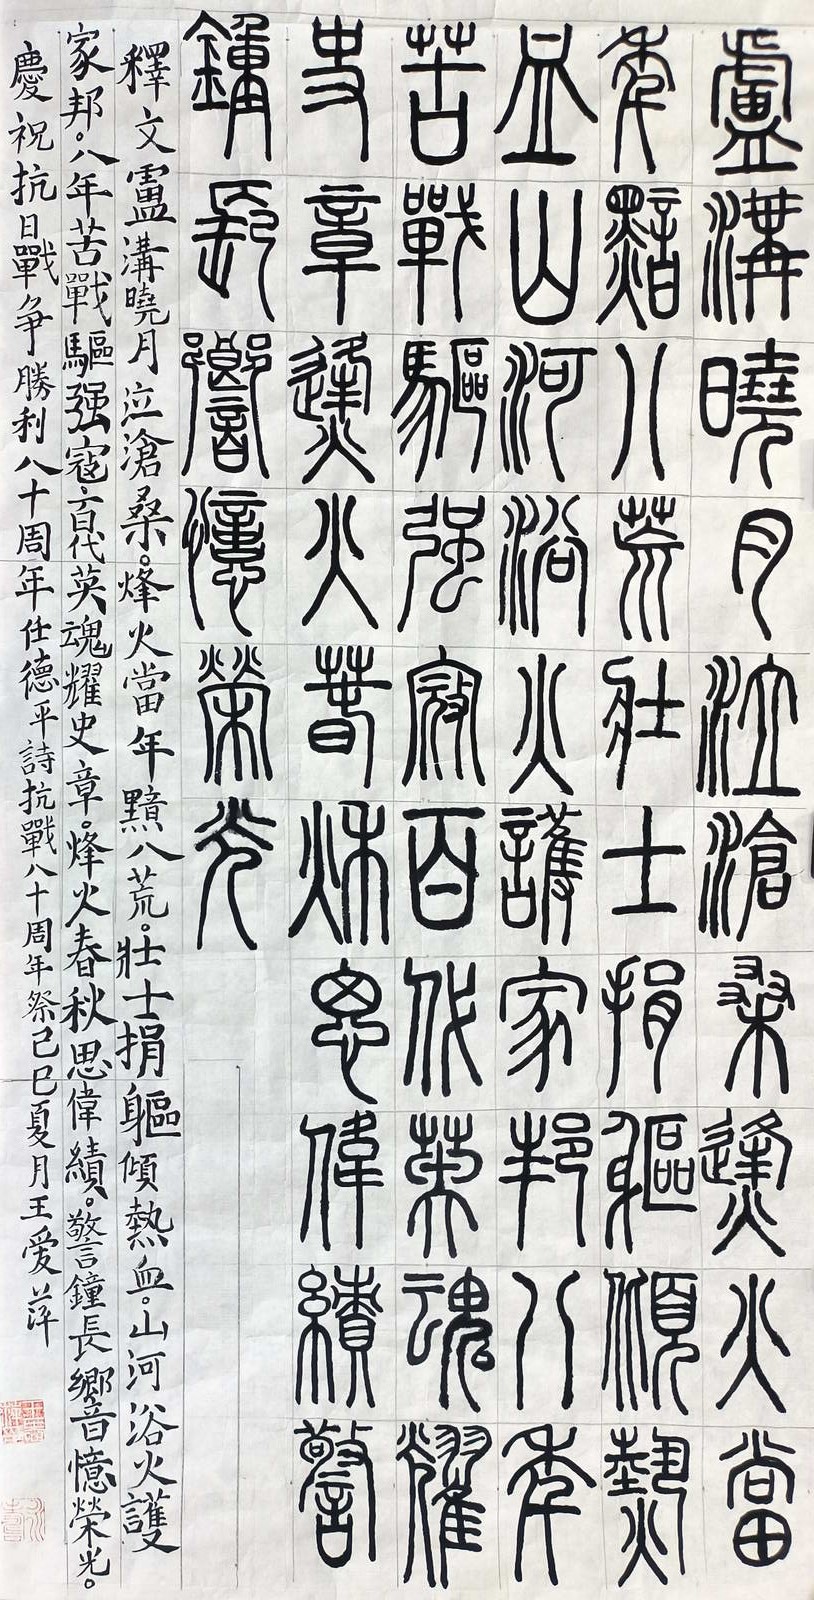 盧溝曉月泣滄桑烽火當
年黯八荒壯士捐軀傾熱
血山河浴火護家邦八年
苦戰驅强寇百代英魂耀
史章烽火春秋思偉績警
鐘長響憶榮光
釋文盧溝曉月泣滄桑。烽火當年黯八荒。壯士捐軀傾熱血。山河浴火護
家邦。八年苦戰驅强寇百代英魂耀史章。烽火春秋思偉績。警鐘長響憶榮光。
慶祝抗日戰爭勝利八十周年仕德平詩抗戰八十周年祭己巳夏月王愛萍